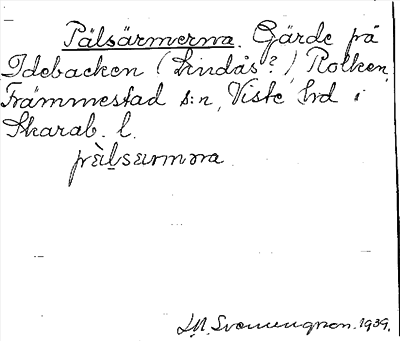 Pälsärmerna. Gärde på
Idebacken (Lindås?) Rolken,
Främmestad s:n, Viste hrd i
Skarab. l.
pæ̀lsærməra
1939.